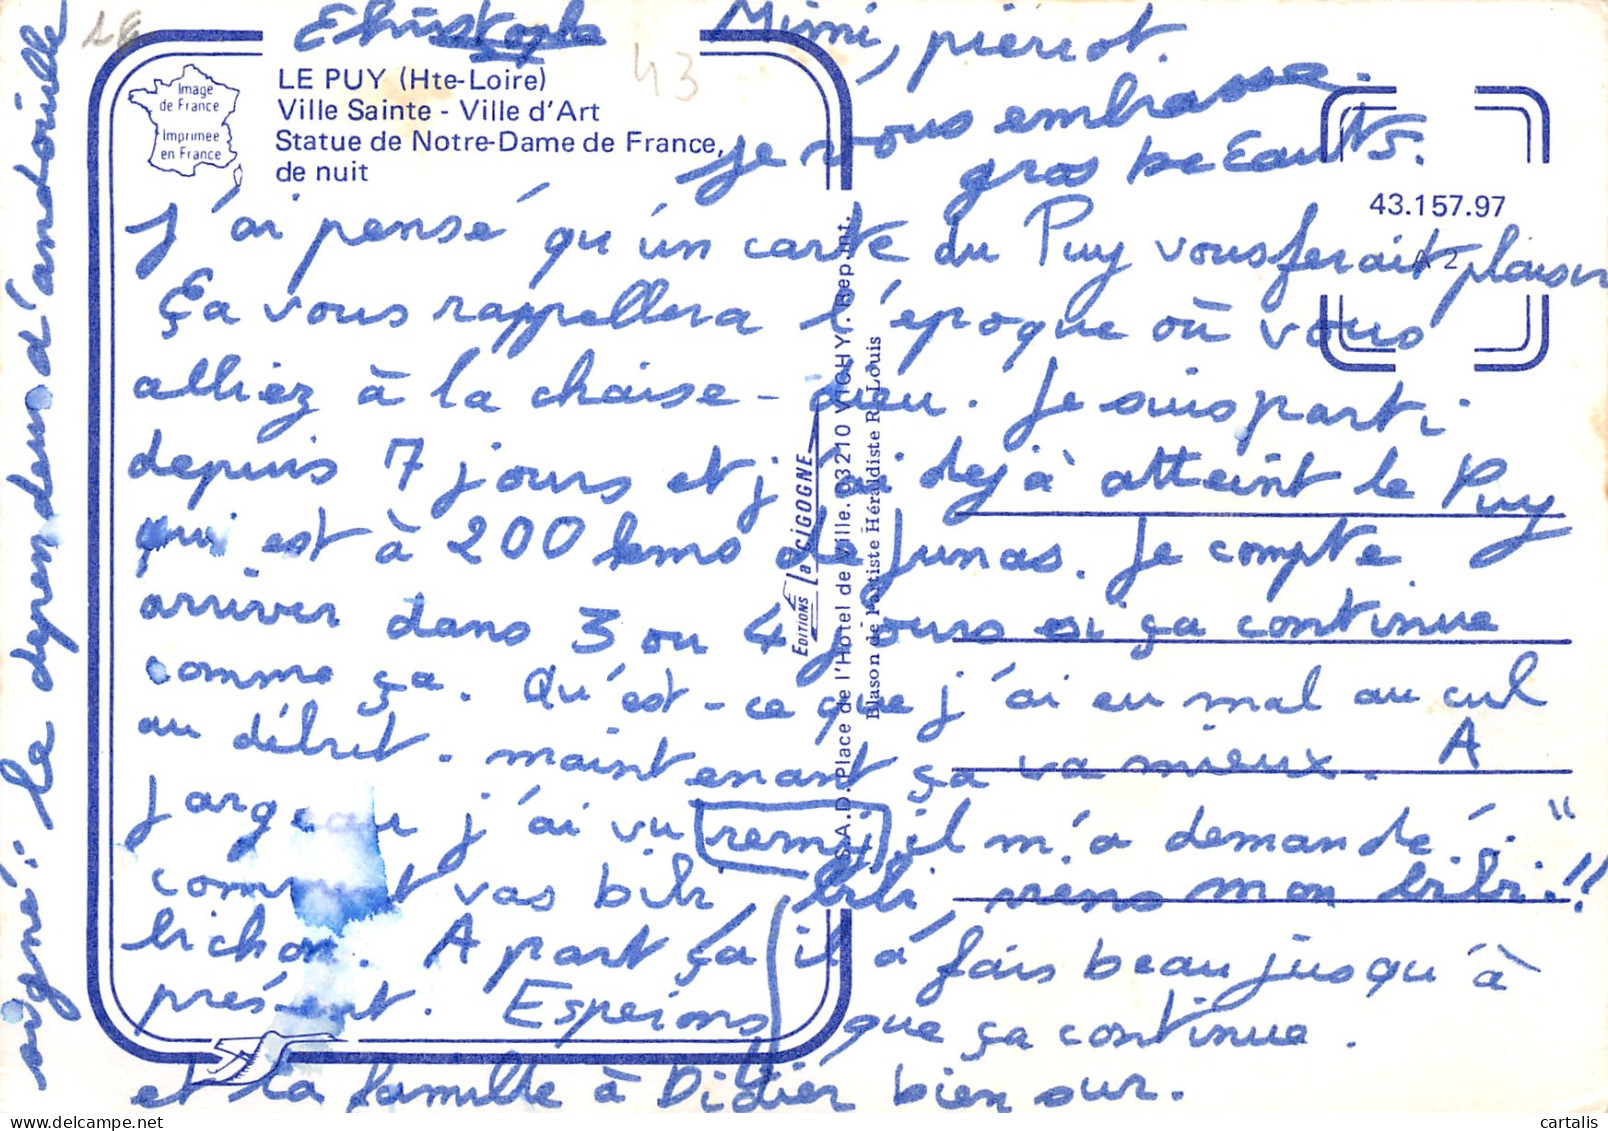 Christophe
Mimi, pierrot.
je vous embrasse.
gros becEauts.
43
LE PUY (Hte-Loire)
Ville Sainte - Ville d'Art
Statue de Notre-Dame de France,
de nuit
Image
de France
Imprimée
en France
43.157.97
A 2
J'ai pensé qu'un carte du Puy vous ferait plaisir
Ça vous rappellera l'époque où vous
alliez à la chaise-dieu. Je suis parti
depuis 7 jours et j'ai dejà atteint le Puy
qui est à 200 kms de Junas. Je compte
arriver dans 3 ou 4 jours si ça continue
comme ça. Qu'est-ce que j'ai eu mal au cul
au début. maintenant ça va mieux. A
Jargeau j'ai vu remi, il m'a demandé : "
comment vas bibi, bibi, viens mon bibi.!!
bichon. A part ça, il a fais beau jusqu'à
présent. Esperons que ça continue.
et la famille à Didier bien sur.
signé : le dependeur d'andouille
EDITIONS la CIGOGNE
S.A.D. Place de l'Hôtel de Ville. 03210 VICHY. Rep. Int.
Blason de l'Artiste Héraldiste R. Louis
cartalis